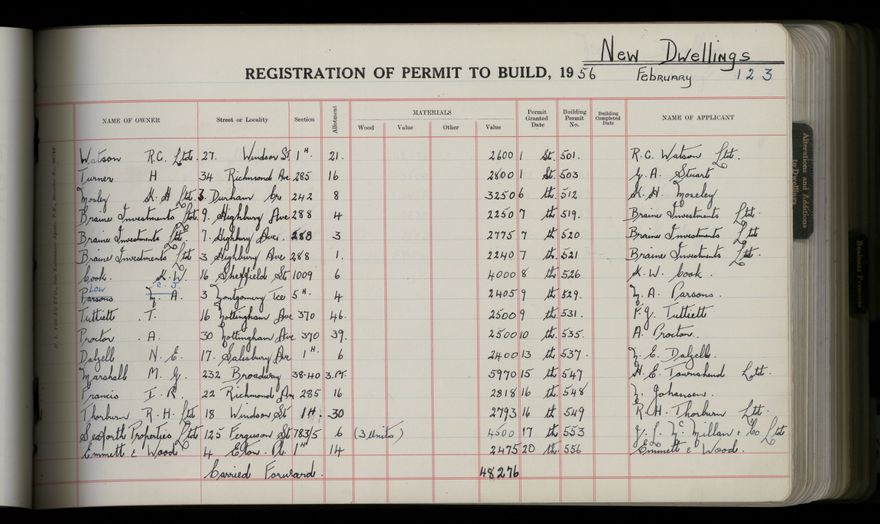 New Dwellings
REGISTRATION OF PERMIT TO BUILD, 1956 February 123
NAME OF OWNER Street or Locality Section Allotment MATERIALS Wood Value Other Value Permit Granted Date Building Permit No. Building Completed Date NAME OF APPLICANT
Watson R.C. Ltd. 27. Windsor St 1H. 21. 2600 1 St. 501. R.C. Watson Ltd.
Turner H 34 Richmond Ave 285 16 2800 1 St. 503 A. Stuart
Mosley K.H Ltd. 3. Durham Cres 242 8 3250 6 th. 512 K.H. Moseley
Braine Investments Ltd. 9. Highbury Ave 288 4 2250 7 th. 519. Braine Investments Ltd.
Braine Investments Ltd 7. Highbury Ave. 288 3 2775 7 th 520 Braine Investments Ltd
Braine Investments Ltd 3 Highbury Ave 288 1. 2240 7 th. 521 Braine Investments Ltd.
Cook. K.W. 16 Sheffield St 1009 6 4000 8 th. 526 K.W. Cook.
Low C.J.
Parsons A. 3 Montgomery Tce 5H. 4 2405 9 th. 529. A. Parsons.
Tuttiett .T. 16 Nottingham Ave 370 46. 2500 9 th. 531. Tuttiett
Procton . A. 30 Nottingham Ave 370 39. 2500 10 th. 535. A. Procton.
Dalzell N.E. 17. Salisbury Ave 1H. 6 2400 13 th. 537. N.E. Dalzell.
Marshall M.G. 232 Broadway 38-40 3.Pt. 5970 15 th. 547 H.E. Townshend Ltd.
Francis I.R. 22 Richmond Ave 285 16 2818 16 th. 548 Johansen.
Thorburn R.H. Ltd 18 Windsor St 1H. 30 2793 16 th 549 R.H. Thorburn Ltd.
Seaforth Properties Ltd 125 Ferguson St 783/5 6 (3 Units) 4500 17 th 553 McMillan & Co Ltd
Emmett & Wood 4 Eton Pl. 1H 14 2475 20 th. 556 Emmett & Wood.
Carried Forward. 48276
Alterations and Additions to Dwellings
Business Premises